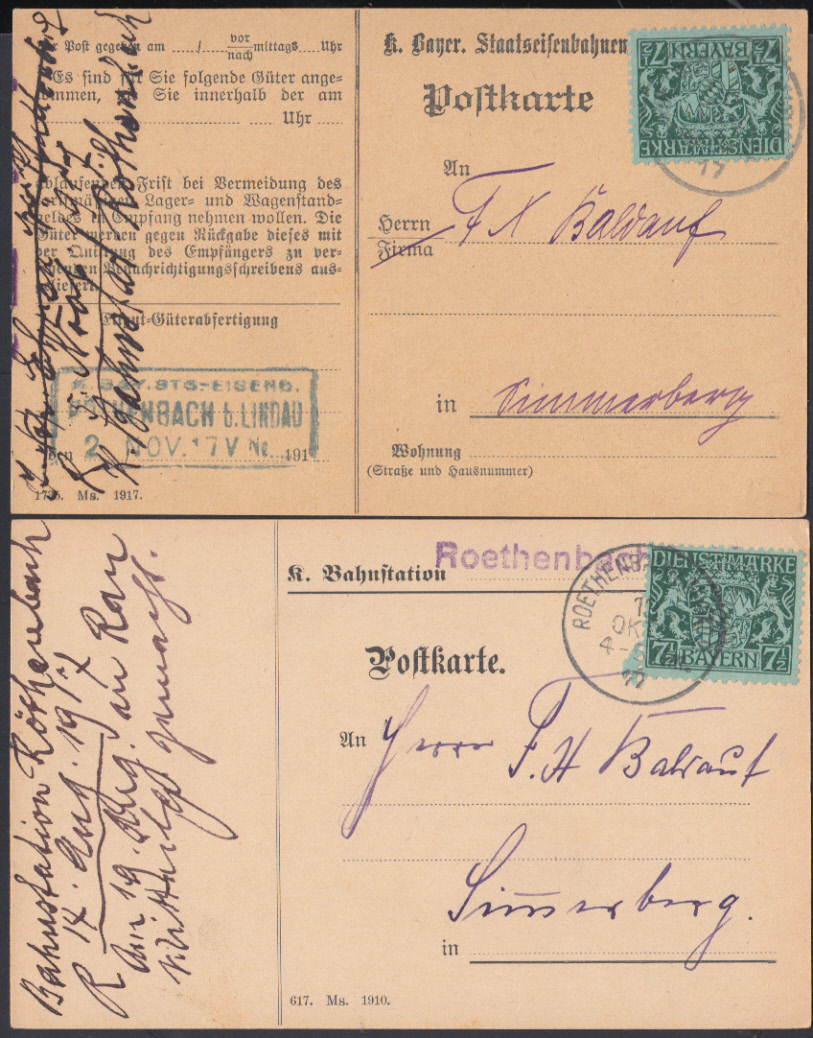 Post gegeben am ..../.... vor/nach mittags .... Uhr
Es sind für Sie folgende Güter ange-
kommen, Sie innerhalb der am
Uhr
ablaufenden Frist bei Vermeidung des
Lager- und Wagenstand-
geldes in Empfang nehmen wollen. Die
Güter werden gegen Rückgabe dieses mit
der Quittung des Empfängers zu ver-
sehenden Benachrichtigungsschreibens aus-
geliefert.
Güterabfertigung
K. BAY. STS-EISENB.
RÖTHENBACH b. LINDAU
2 NOV. 17 V
den 191
1735. Ms. 1917.
K. Bayer. Staatseisenbahnen
Postkarte
An
Herrn F X Baldauf
Firma
in Simmerberg
Wohnung
(Straße und Hausnummer)
7½ BAYERN 7½
DIENSTMARKE
17
Bahnstation Röthenbach
R 14. Aug. 1917
Am 19. Aug. an Rau
gemacht.
K. Bahnstation Roethenbach
Postkarte.
An Herrn F. X Baldauf
in Simmerberg.
617. Ms. 1910.
DIENSTMARKE
7½ BAYERN 7½
ROETHENB
OK
4-
17